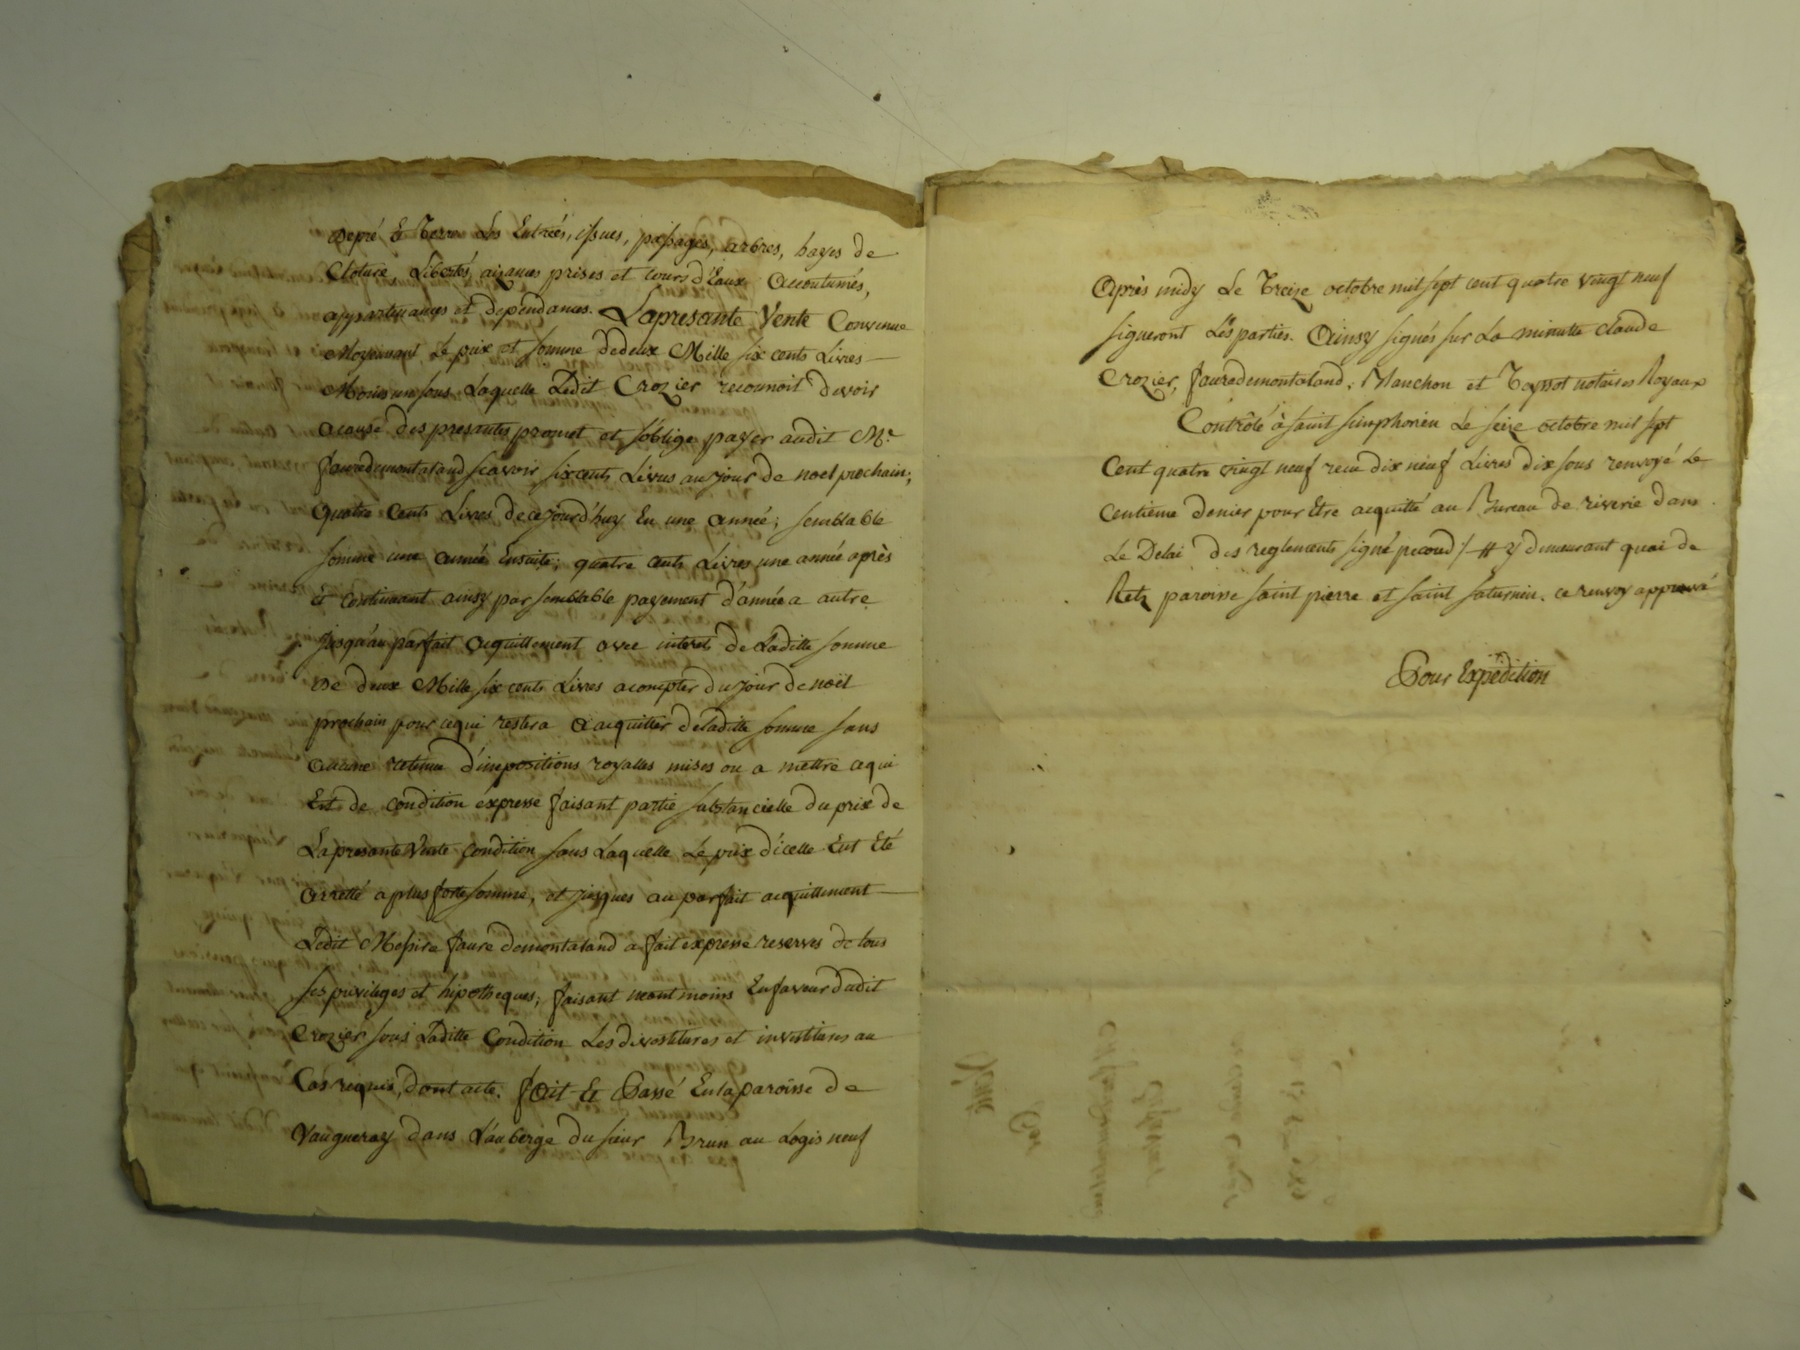 depré & Terre Les Entrées, issues, passages, arbres, hayes de
Cloture, Libertés, aizances prises et cours d'Eaux accoutumés,
appartenances et dependances. Lapresante Vente Convenue
Moyennant Le prix et somme dedeux Mille six cents Livres
Moins un sous Laquelle Ledit Crozier reconnoit devoir
acause des presantes promet et s'oblige payer audit Mr
fauredemontaland scavoir six cents Livres au jour de noel prochain;
Quatre Cents Livres decejourd'huy En une année; semblable
somme une année Ensuite; quatre cents Livres une année après
Et Continuant ainsy par semblable payement d'année a autre
Jusqu'au parfait acquittement avec interets de Laditte somme
De deux Mille six cents Livres acompter du jour de noël
prochain pour cequi restera a acquitter deladitte somme sans
aucune retenue d'impositions royalles mises ou a mettre cequi
Est de condition expresse faisant partie substancielle du prix de
Lapresante Vente Condition sans Laquelle Le prix d'icelle Eut Eté
arretté a plus forte somme, et jusques au parfait acquittement
Ledit Messire faure demontaland a fait expresse reserves de tous
ses privileges et hipotheques; faisant neantmoins Enfaveur dudit
Crozier sous Laditte Condition Les divestitures et investitures au
Cas requis, dont acte. fait & Passé Enlaparoisse de
Vaugneray dans L'auberge du sieur Brun au Logis neuf
Après midy Le Treize octobre mil sept cent quatre vingt neuf
signeront Les parties. Ainsy signés sur La minutte claude
Crozier, fauredemontaland, Blanchon et Teyssot notaires Royaux
Contrôlé à saint simphorien Le seize octobre mil sept
Cent quatre vingt neuf recu dix neuf Livres dix sous renvoyé Le
Centieme denier pour Etre acquitté au Bureau de riverie dans
Le Delai des reglements signé /# y demeurant quai de
Retz paroisse saint pierre et saint saturnin. ce renvoy approuvé
Pour Expédition